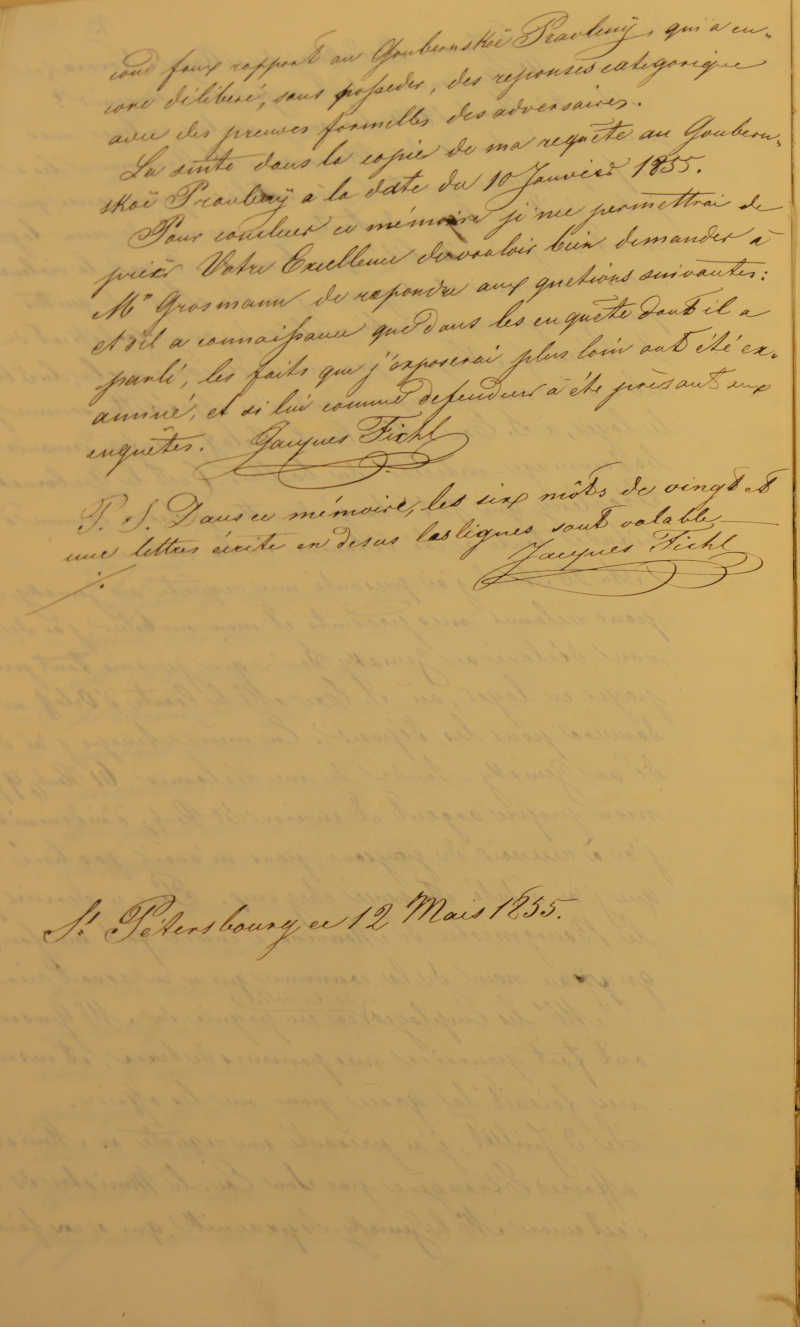 cond faux rapport au Goubernskoë Pravleny, qui a en-
core déliberé, sans posseder, des reponses categorique
avec des preuves formelles des adversaires.
La suite dans la copie de ma requête au Gouberu-
skoë Pravleny à la date du 10 Janvier 1855.
Pour conclure ce mémoire je me permettrai de
prier Votre Excellence de vouloir bien demander à
Mr Grosmann de repondre aux questions suivantes:
et s'il a connaissance que dans les enquête dont il a
parlé, les faits que j'exposerai plus loin ont été ex-
aminé, et si lui comme defendeur à éte présant aux
enquêtes. Jacques Fichl
P. S. Dans ce mémoire, les six môts de vingt et
une lettres écrite en desus les lignes sont valable
Jacques Fichl
St Pétersbourg ce 12 Mais 1855.